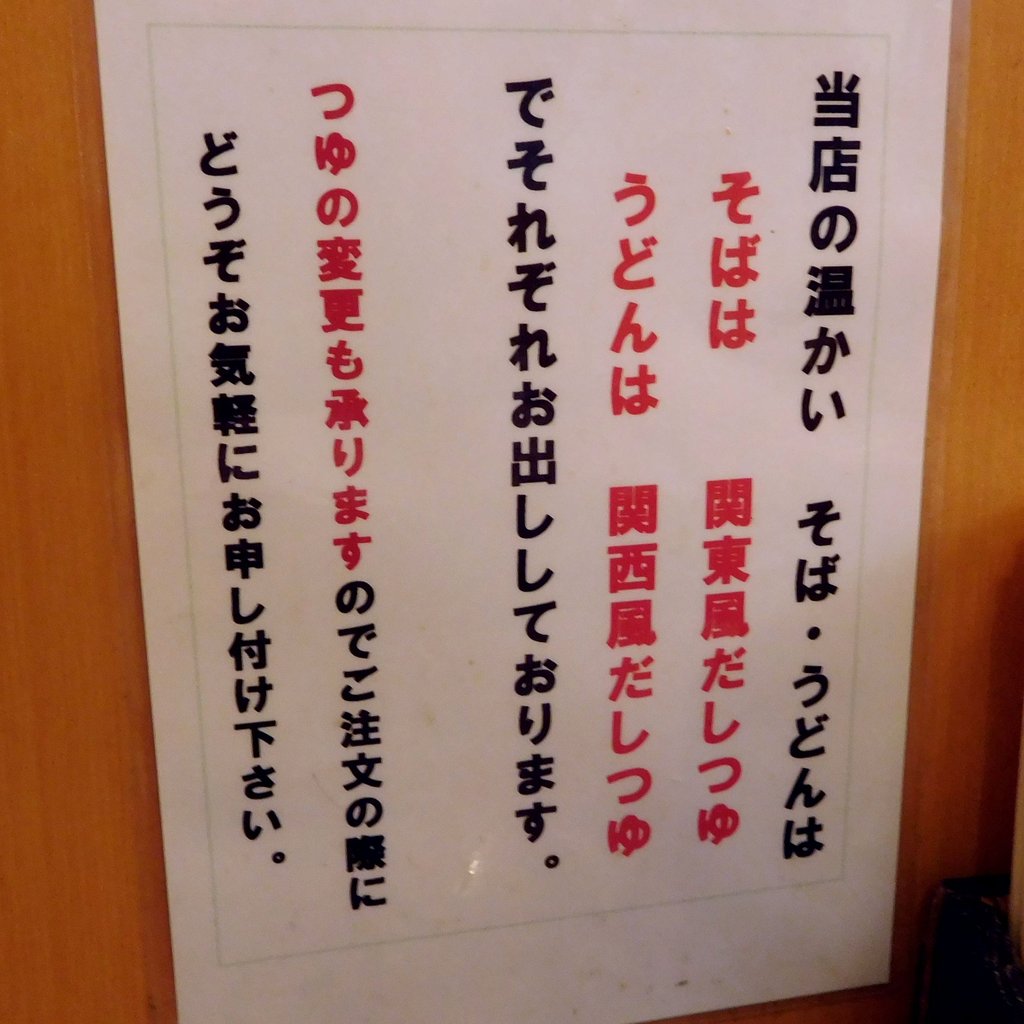 当店の温かい　そば・うどんは
そばは　関東風だしつゆ
うどんは　関西風だしつゆ
でそれぞれお出ししております。
つゆの変更も承りますのでご注文の際に
どうぞお気軽にお申し付け下さい。